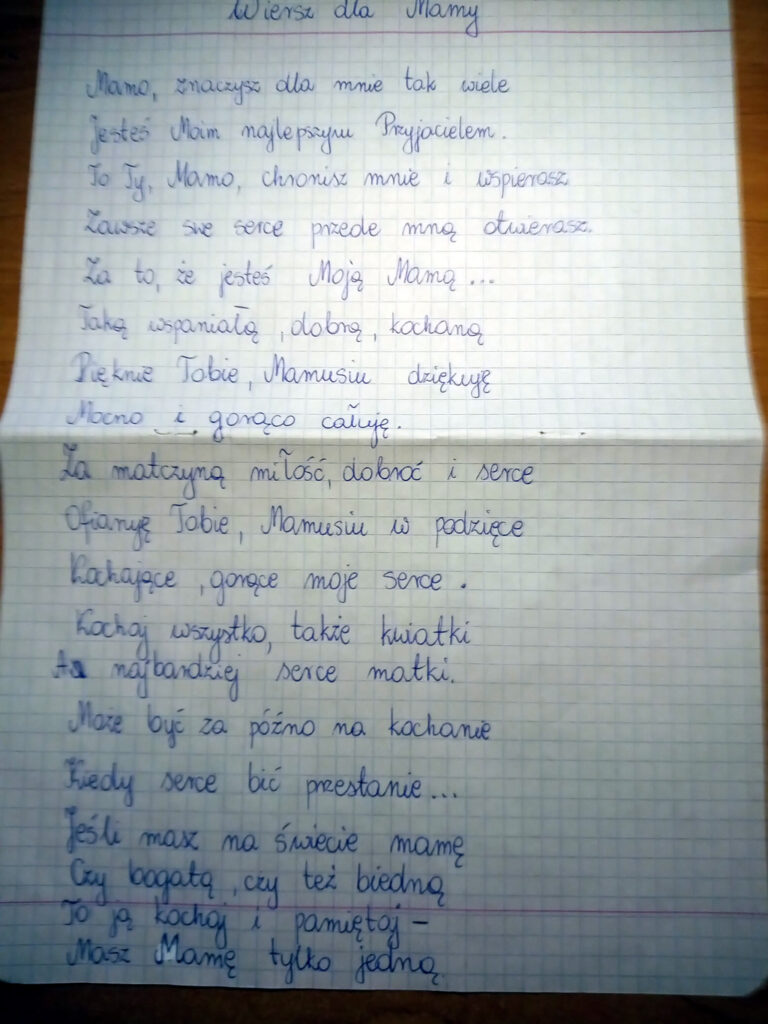 Wiersz dla Mamy
Mamo, znaczysz dla mnie tak wiele
Jesteś Moim najlepszym Przyjacielem.
To Ty, Mamo, chronisz mnie i wspierasz
Zawsze swe serce przede mną otwierasz.
Za to, że jesteś Moją Mamą...
Taką wspaniałą, dobrą, kochaną
Pięknie Tobie, Mamusiu dziękuję
Mocno i gorąco całuję.
Za matczyną miłość, dobroć i serce
Ofiaruję Tobie, Mamusiu w podzięce
Kochające, gorące moje serce.
Kochaj wszystko, także kwiatki
A najbardziej serce matki.
Może być za późno na kochanie
Kiedy serce bić przestanie...
Jeśli masz na świecie mamę
Czy bogatą, czy też biedną
To ją kochaj i pamiętaj -
Masz Mamę tylko jedną.